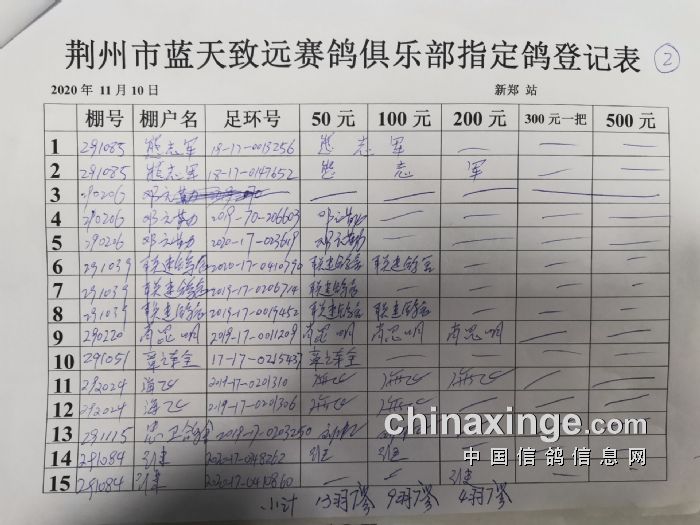 荆州市蓝天致远赛鸽俱乐部指定鸽登记表 ②
2020 年 11 月 10 日 新郑 站
棚号 棚户名 足环号 50 元 100 元 200 元 300 元一把 500 元
1 291085 熊志军 18-17-0013256 熊 志 军 — — —
2 291085 熊志军 18-17-0147652 熊 志 军 — —
3 290206 邓立勤 — — — — —
4 290206 邓立勤 2019-70-206603 邓立勤 — — — —
5 290206 邓立勤 2020-17-003619 邓立勤 — — — —
6 291039 联建鸽舍 2020-17-0410790 联建鸽舍 联建鸽舍 — — —
7 291039 联建鸽舍 2019-17-0206714 联建鸽舍 — — — —
8 291039 联建鸽舍 2019-17-0019452 联建鸽舍 联建鸽舍 — — —
9 290220 肖昆明 2019-17-0011209 肖昆明 肖昆明 肖昆明 — —
10 291051 17-17-0215437 — — — —
11 292024 海飞 2019-17-0201310 海飞 海飞 海飞 — —
12 292024 海飞 2019-17-0201306 海飞 海飞
13 291115 2019-17-0203250
14 291084 2020-17-0418262
15 291084 2020-17-0410860
小计 13羽 9羽 4羽
chinaxinge.com
中国信鸽信息网